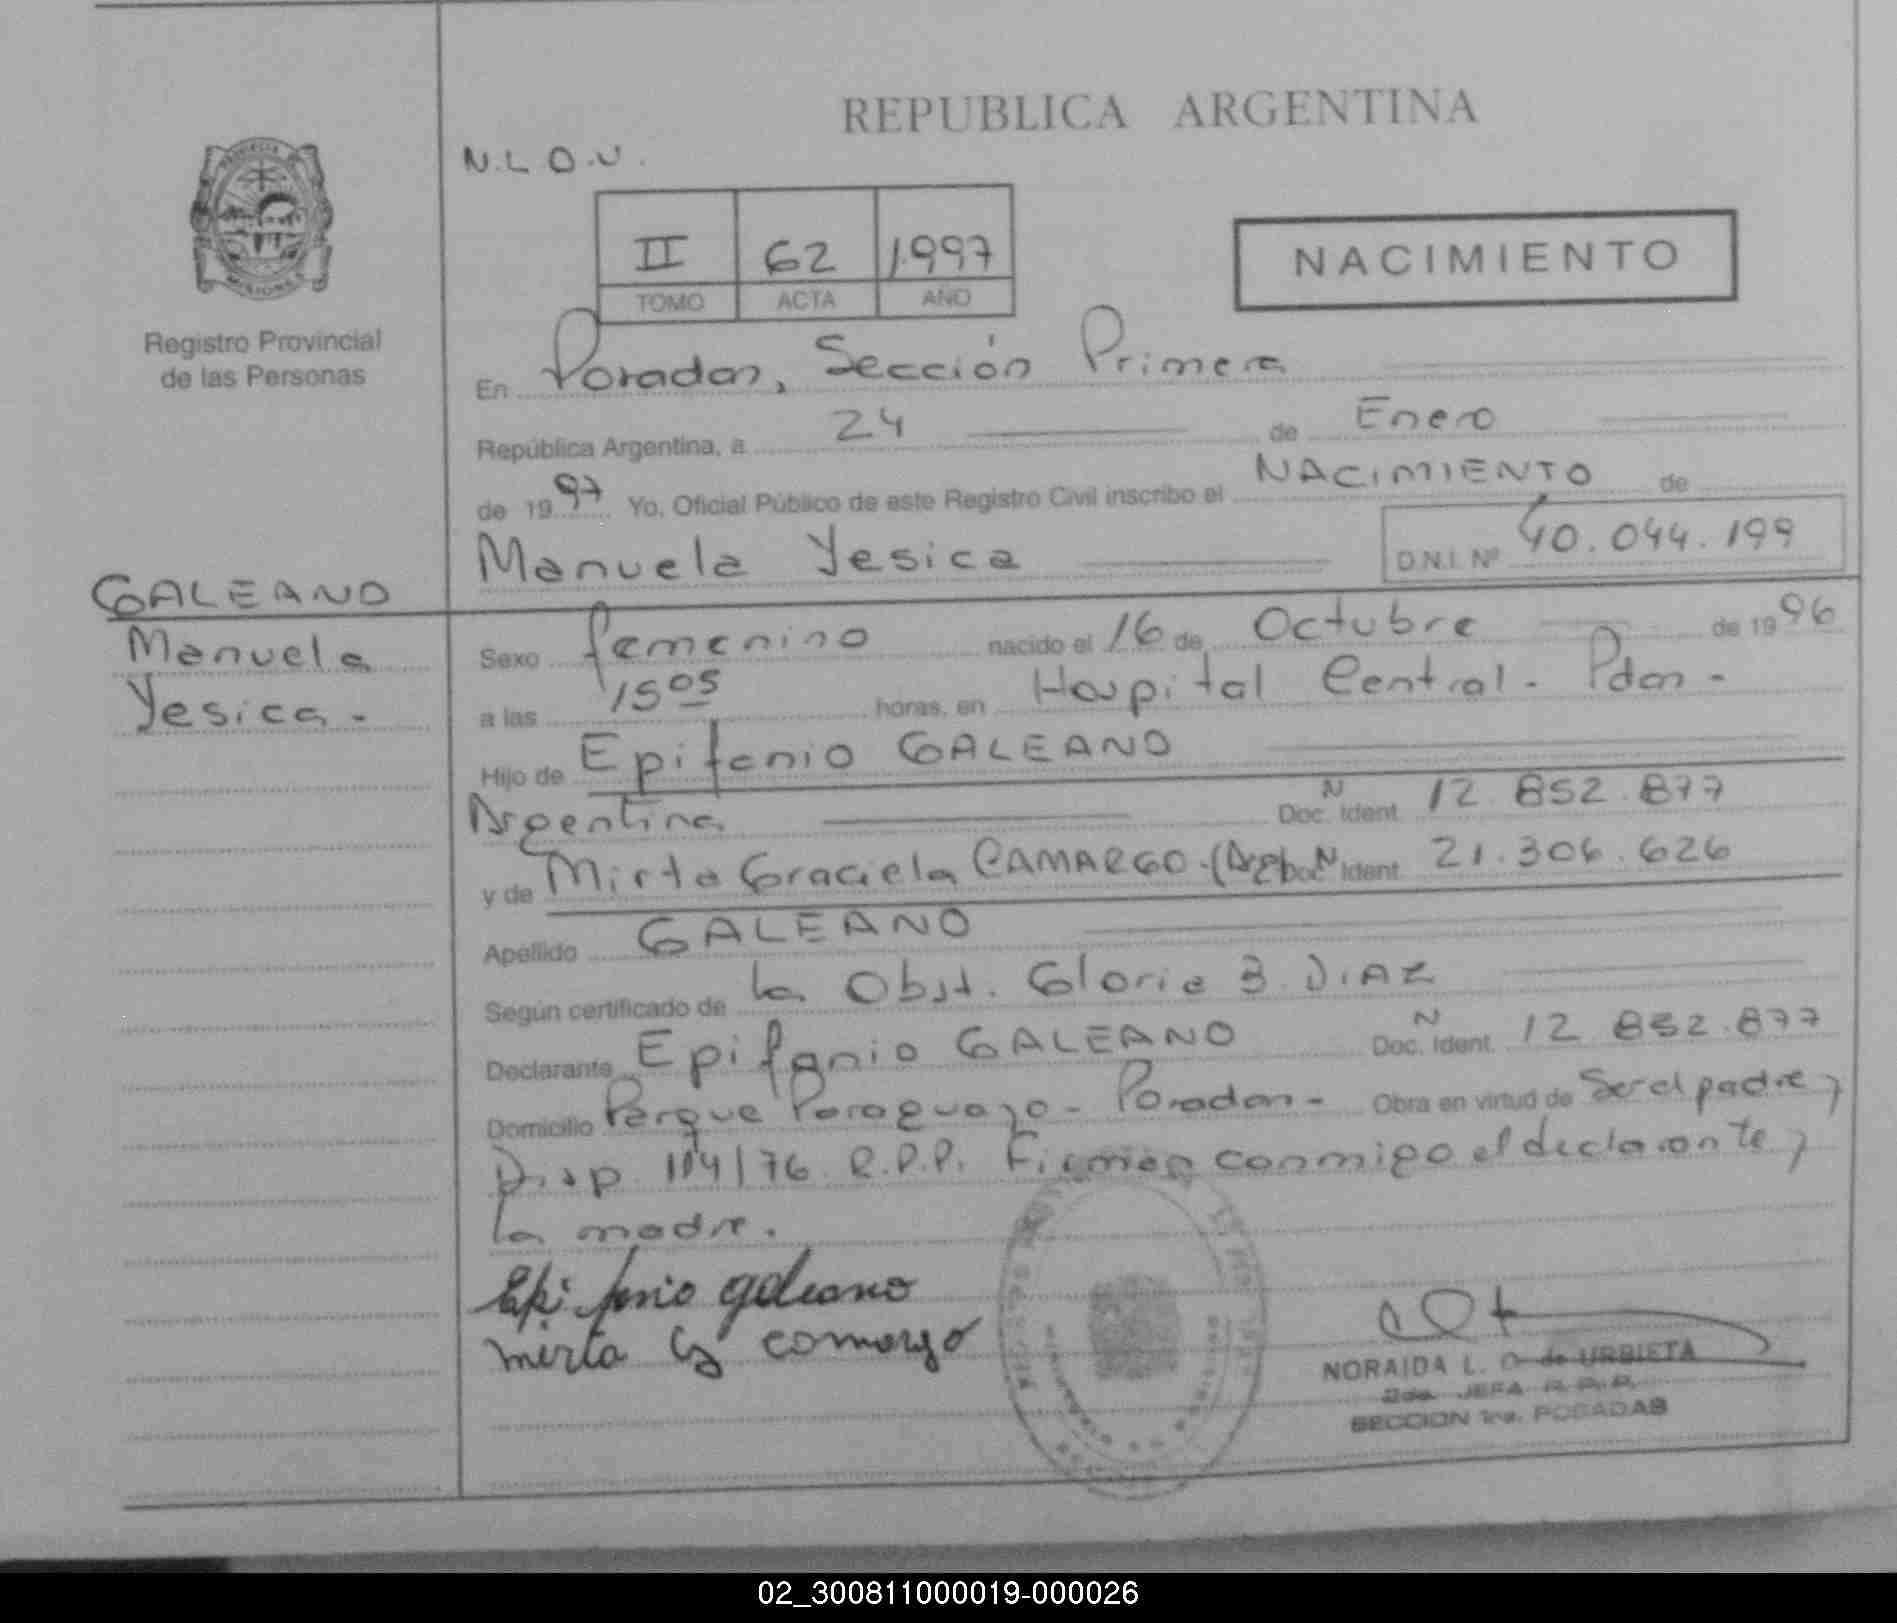 REPUBLICA ARGENTINA
N.L.O.U.
II 62 1997
TOMO ACTA AÑO
NACIMIENTO
PROVINCIA
MISIONES
Registro Provincial
de las Personas
En Posadas, Sección Primera
República Argentina, a 24 de Enero
de 1997 Yo, Oficial Público de este Registro Civil inscribo el NACIMIENTO de
Manuela Yesica D.N.I. Nº 40.044.199
GALEANO
Manuela
Yesica.-
Sexo femenino nacido el 16 de Octubre de 1996
a las 15 05 horas, en Hospital Central - Pdas -
Hijo de Epifanio GALEANO
Argentina N Doc. Ident. 12.852.877
y de Mirta Graciela CAMARGO-(Arg) Doc. N Ident. 21.306.626
Apellido GALEANO
Según certificado de la Obst. Gloria B. DIAZ
Declarante Epifanio GALEANO N Doc. Ident. 12.852.877
Domicilio Parque Paraguayo - Posadas - Obra en virtud de Ser el padre y
Disp. 114/76 R.P.P. Firman conmigo el declarante y
la madre.
Epifanio galeano
mirta G camargo
NORAIDA L. O de URBIETA
2da. JEFA R.P.P.
SECCION 1ra. POSADAS
02_300811000019-000026